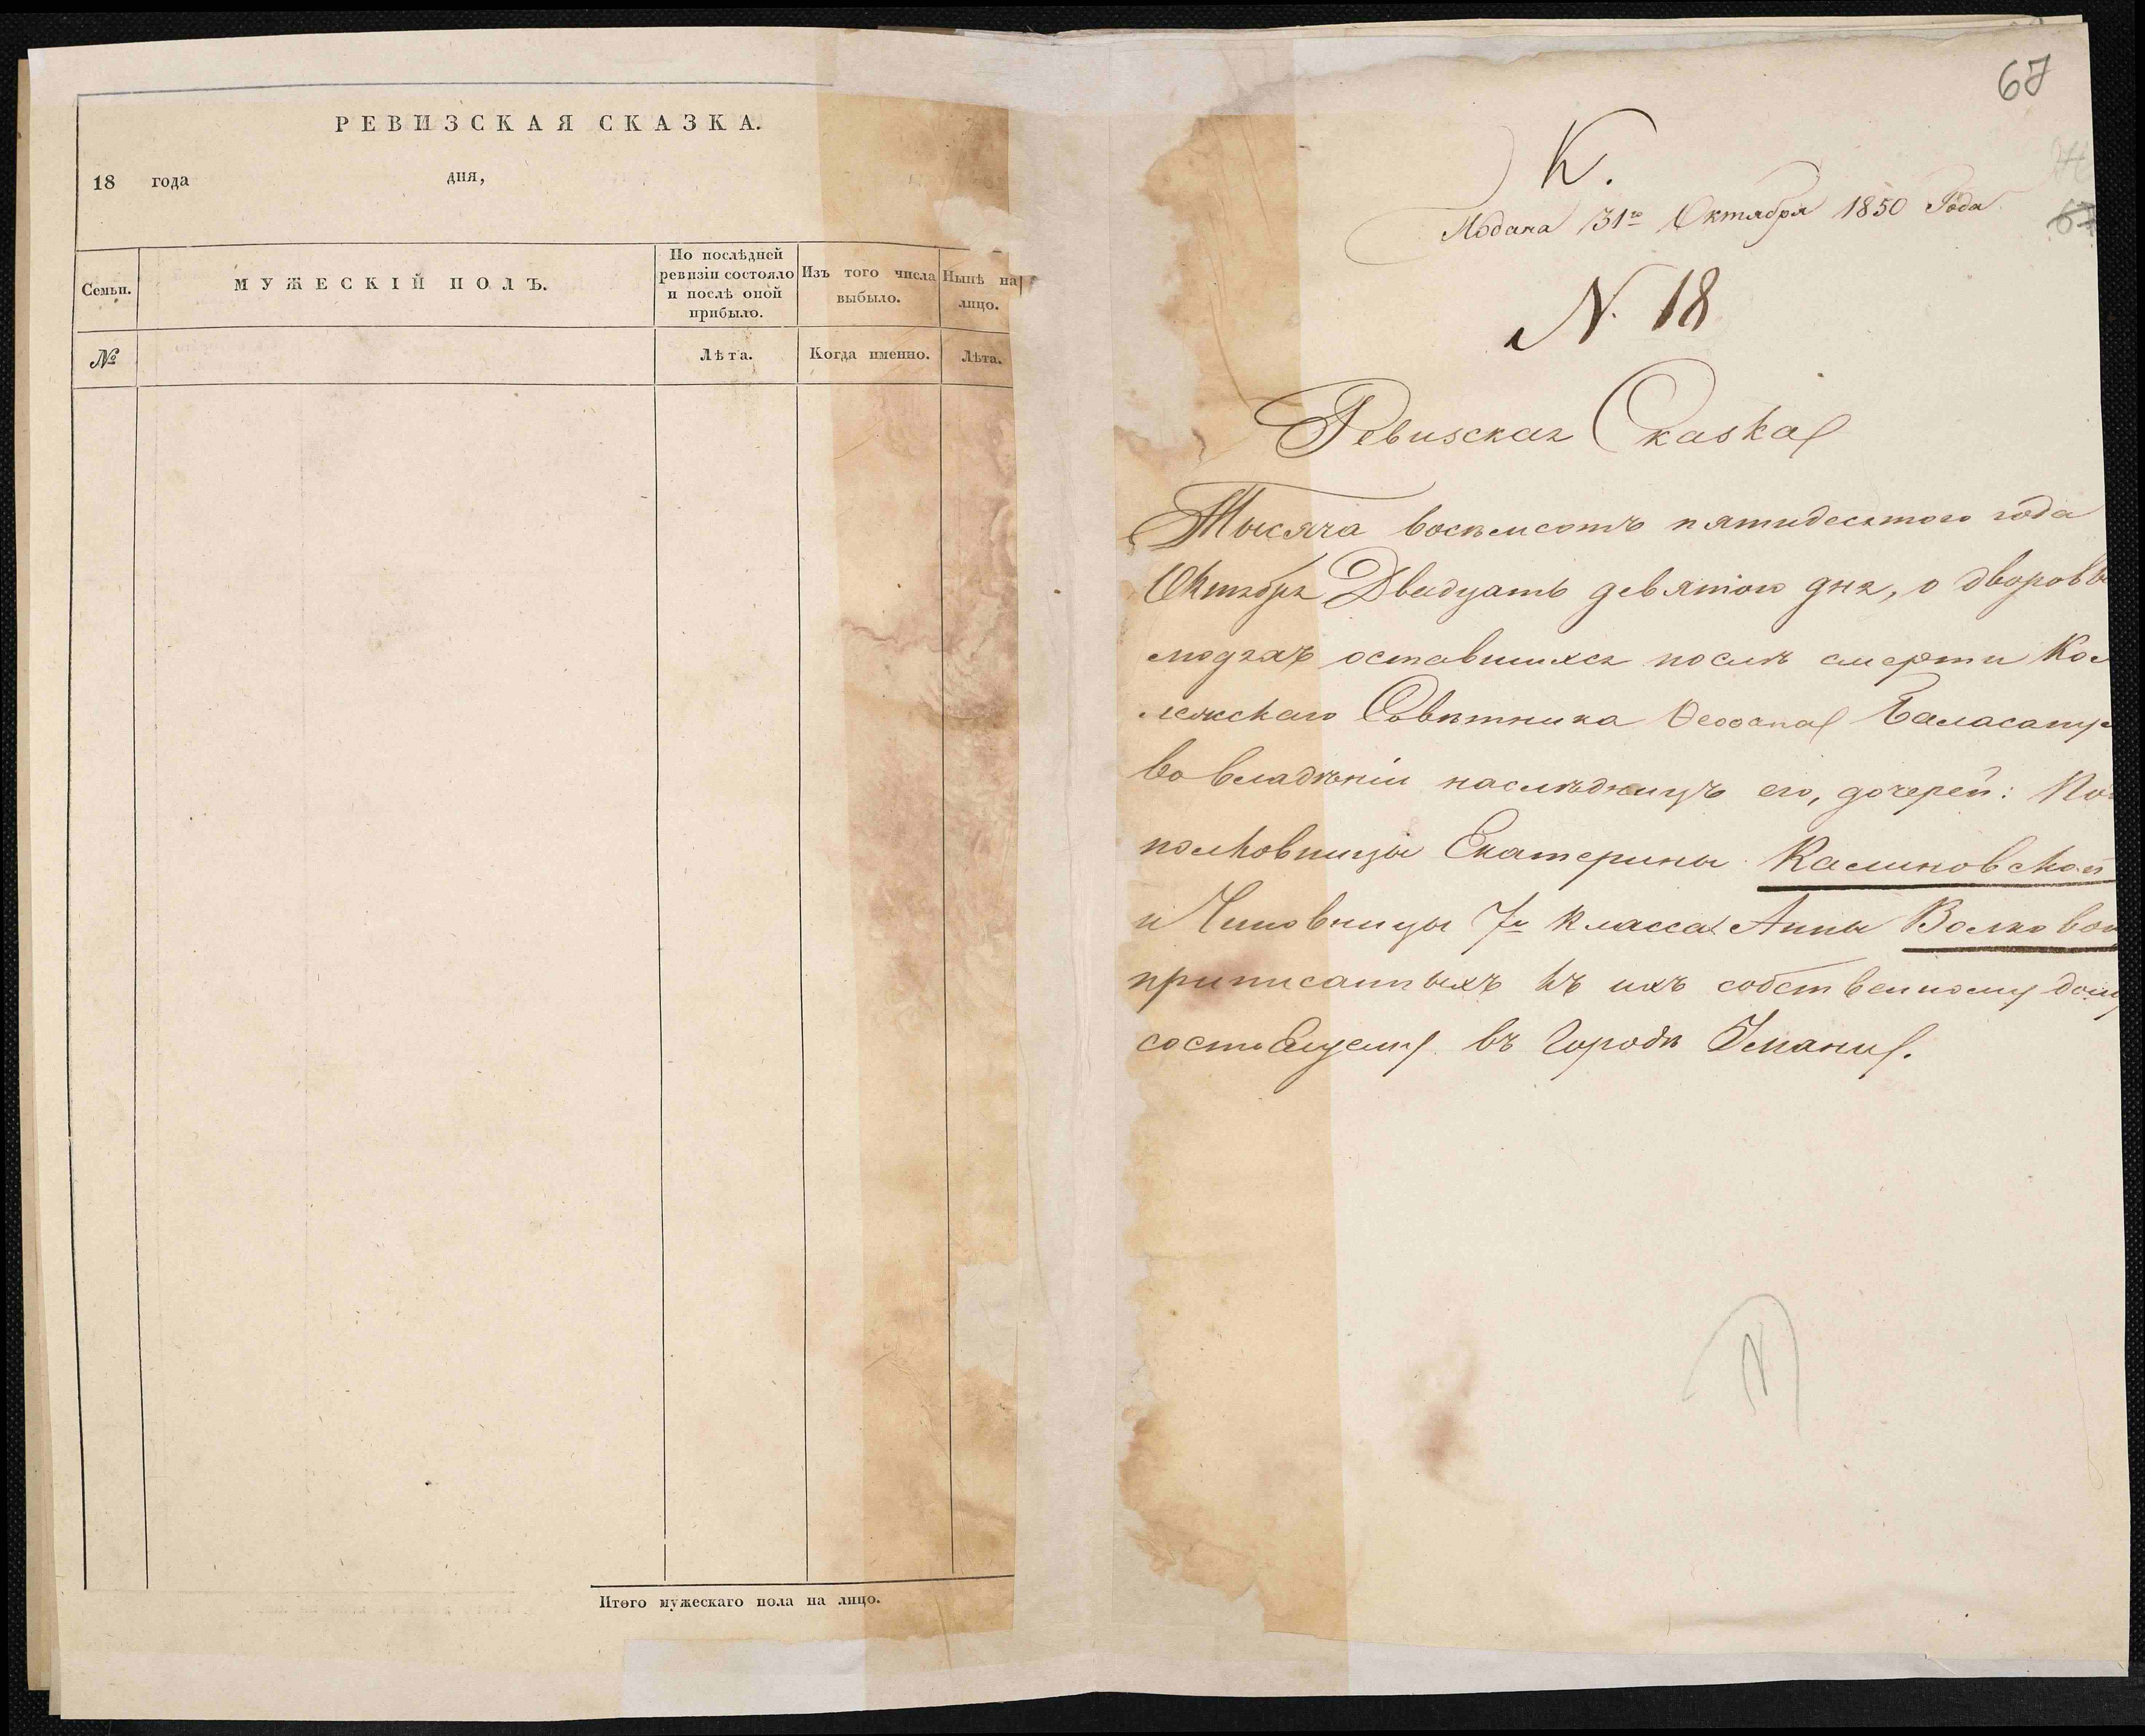 РЕВИЗСКАЯ СКАЗКА.
18 года дня,
Семьи.
МУЖЕСКІЙ ПОЛЪ.
По послѣдней
ревизіи состояло
и послѣ оной
прибыло.
Изъ того числа
выбыло.
Нынѣ на
лицо.
№
Лѣта.
Когда именно.
Лѣта.
Итого мужескаго пола на лицо.
67
К.
Подана 31го Октября 1850 Года
N. 18
Ревизская Сказка
Тысяча восемсотъ пятидесятого года
Октября Двадцать девятого дня, о дворовы
людяхъ оставшихся послѣ смерти Кол
лежскаго Совѣтника
во владѣніи наслѣдницъ его, дочерей: По
полковницы Екатерины Калиновской
и Чиновницы 7го класса Анны Волковой
приписанныхъ къ ихъ собственному дому
состоящему въ Городѣ Умани.